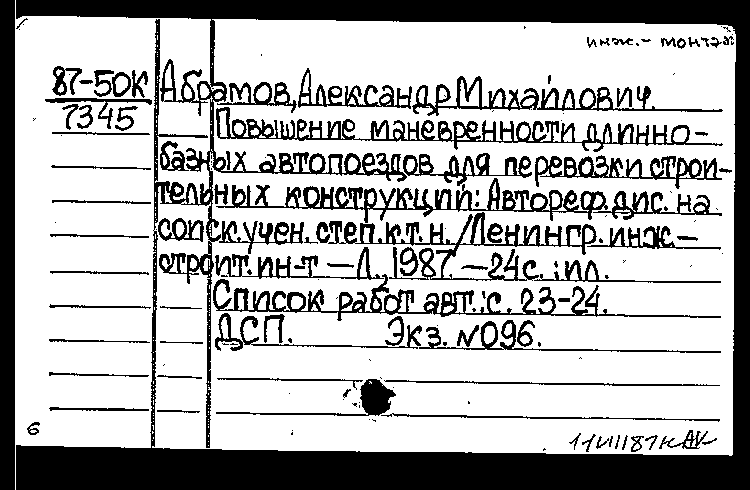 инж.-монтаж
87-50К Абрамов, Александр Михайлович.
7345 Повышение маневренности длинно-
базных автопоездов для перевозки строи-
тельных конструкций: Автореф.дис. на
соиск.учен.степ.к.т.н./Ленингр.инж.-
строит.ин-т —Л., 1987. —24с.:ил.
Список работ авт.:с. 23-24.
ДСП. Экз. №096.
6